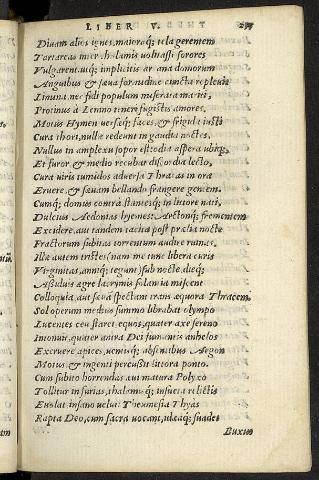 LIBER V.
Diuam alios ignes, maioraq; tela gerentem
Tartareas inter thalamis uolitasse sorores
Vulgarent, utq; implicitis arcana domorum
Anguibus & sæua formidine cuncta repleuit
Limina, nec fidi populum miserata mariti,
Protinus à Lemno teneri fugistis amores,
Motus Hymen uersæq; faces, & frigida iusti
Cura thori, nullæ redeunt in gaudia noctes,
Nullus in amplexu sopor est, odia aspera ubiq;
Et furor & medio recubat discordia lecto,
Cura uiris tumidos aduersa Thracas in ora
Eruere, & sæuam bellando frangere gentem.
Cumq; domus contrà, stantesq; in littore nati,
Dulcius Aedonias hyemes, Arctonq; frementem
Excidere, aut tandem tacita post prælia nocte
Fractorum subitas torrentum audire ruinas.
Illæ autem tristes (nam me tunc libera curis
Virginitas, anniq; tegunt) sub nocte, dieq;
Assiduis ægre lacrymis solantia miscent
Colloquia, aut sæua spectant trans æquora Thracem.
Sol operum medius summo librabat olympo
Lucentes ceu staret, equos, quater axe sereno
Intonuit, quater antra Dei fumantis anhelos
Exeruere apices, uentisq; absentibus Aegon
Motus & ingenti percussit littora ponto.
Cum subitò horrendas æui matura Polyxo
Tollitur in furias, thalamisq; insueta relictis
Euolat insano uelut Theumesia Thyas
Rapta Deo, cum sacra uocant, ideaq; suadet
Buxus